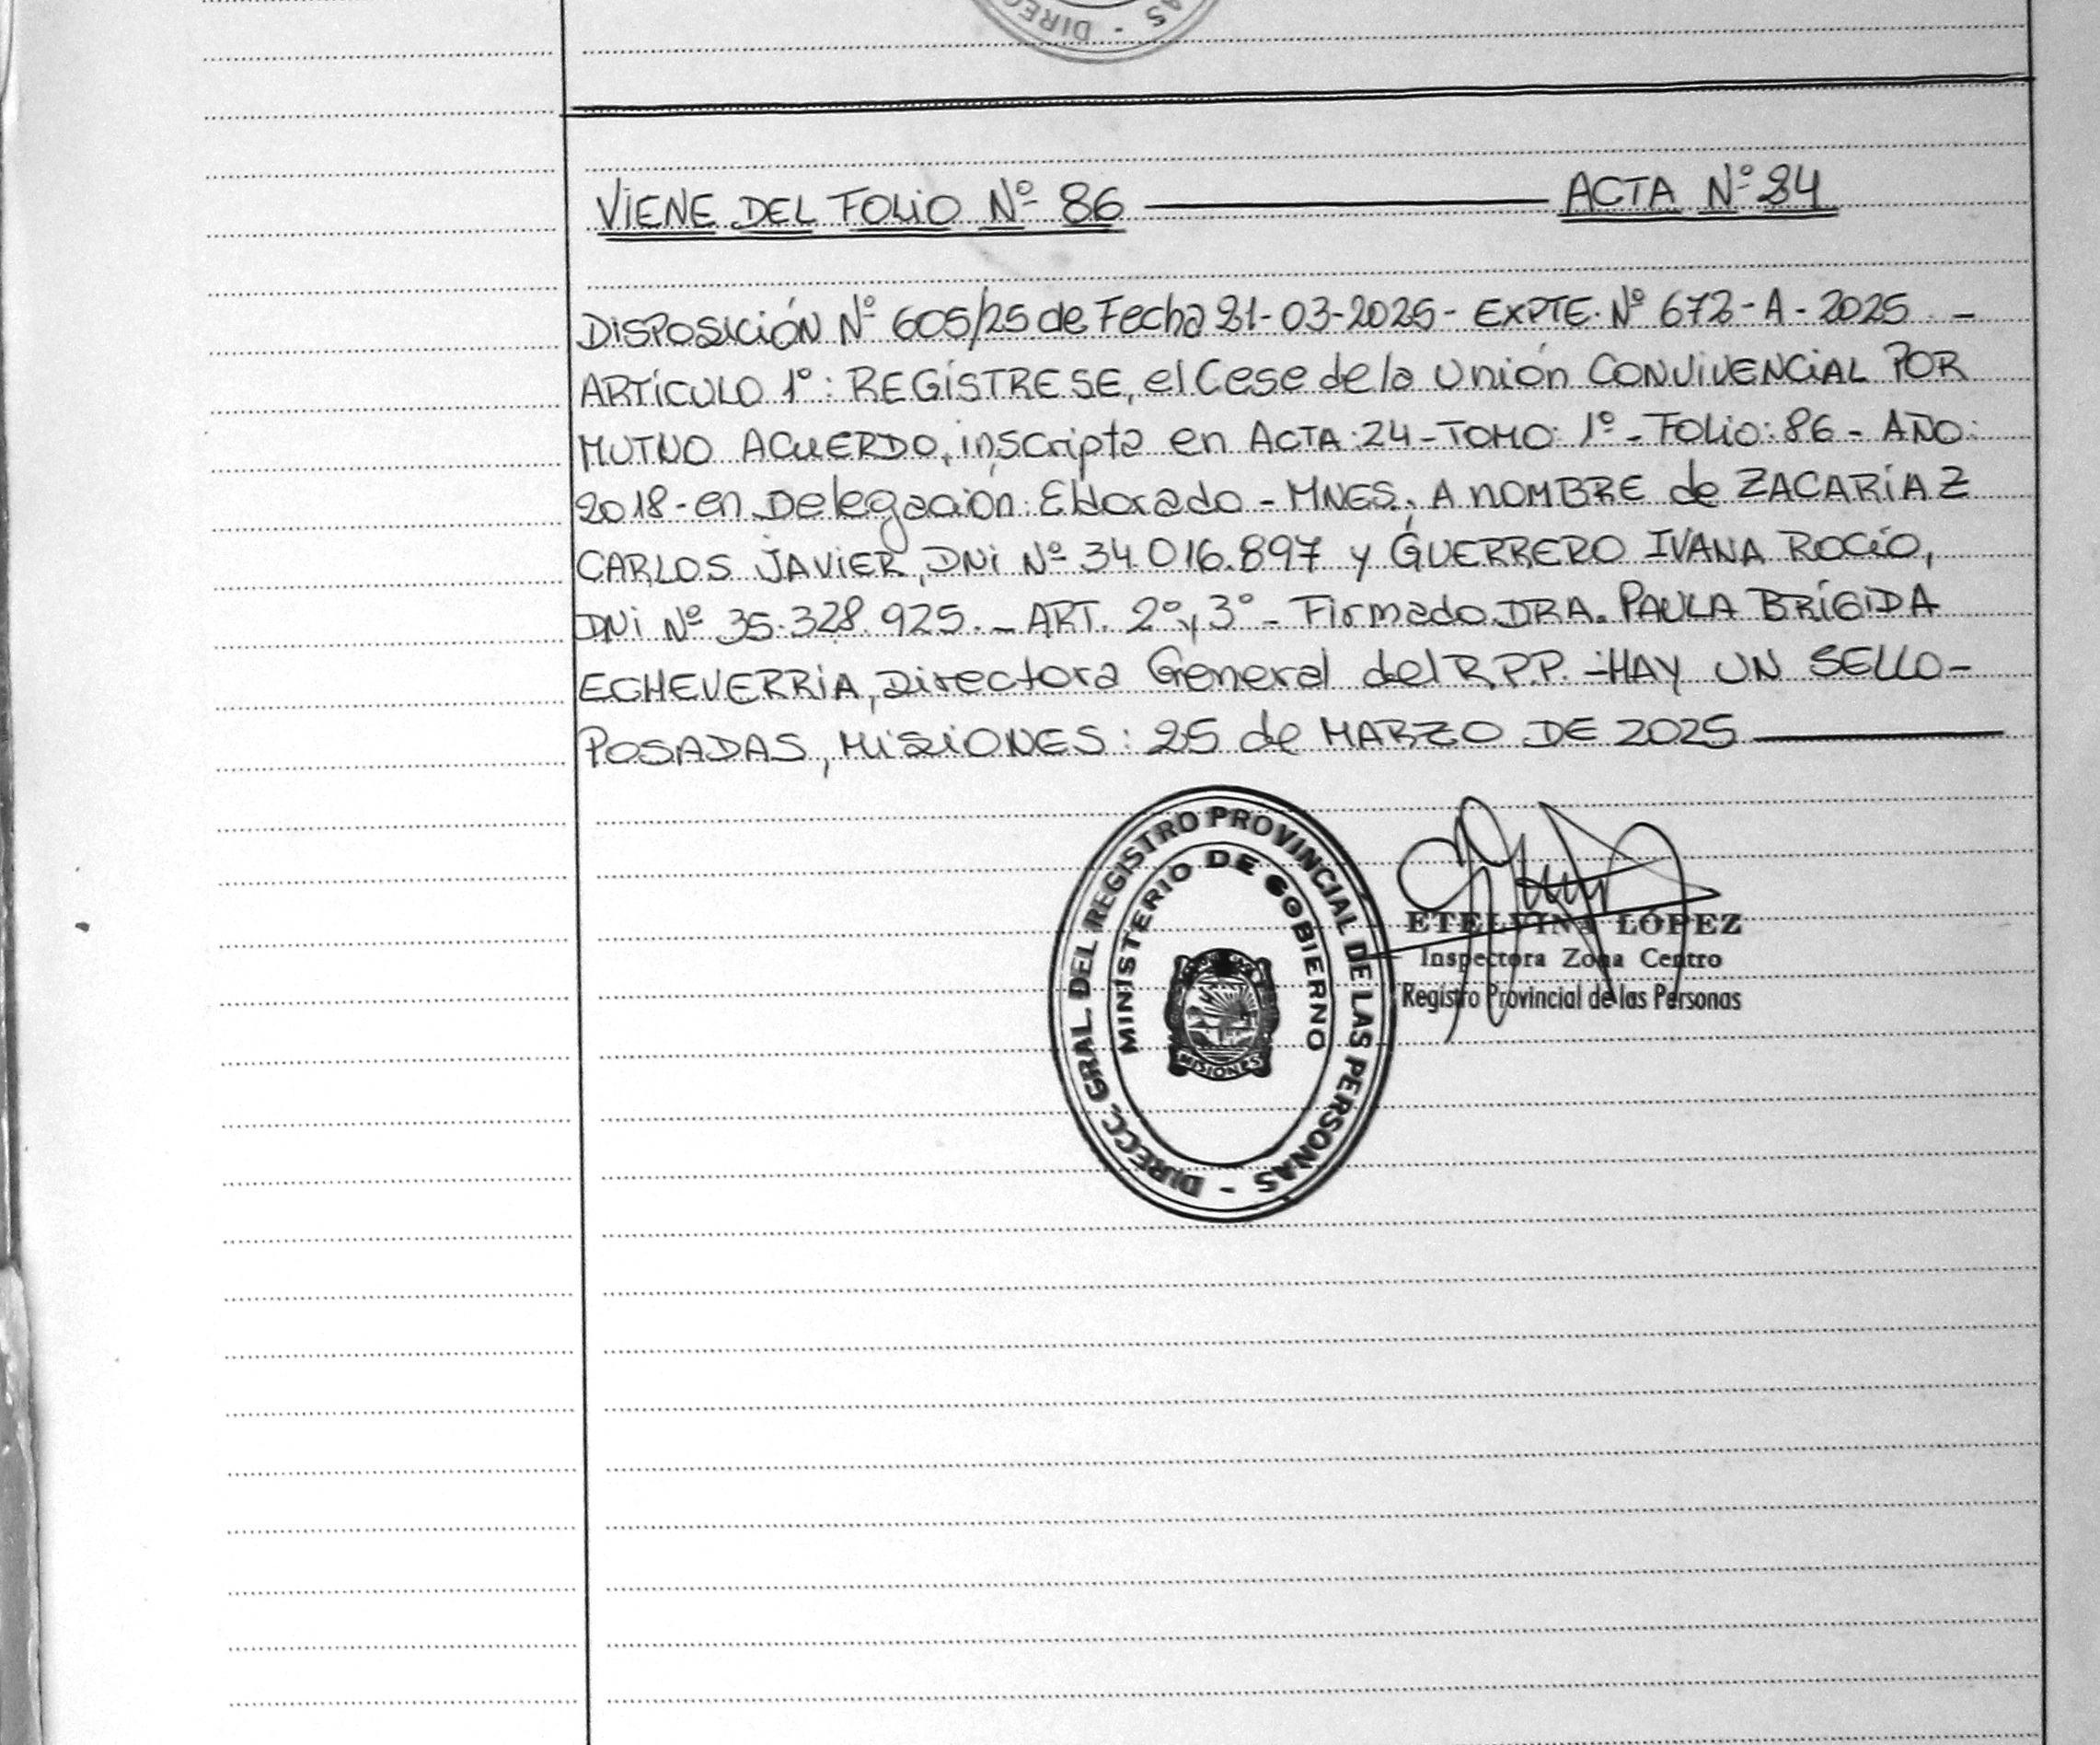 AS - DIREC
VIENE DEL FOLIO Nº 86 ACTA Nº 24
DISPOSICIÓN Nº 605/25 de Fecha 21-03-2025- EXPTE. Nº 672-A-2025 -
ARTÍCULO 1º: REGÍSTRESE, el Cese de la Unión CONVIVENCIAL POR
MUTUO ACUERDO, inscripta en ACTA:24-TOMO: 1º-FOLIO:86- AÑO:
2018-en Delegación: Eldorado - MNES, A NOMBRE de ZACARÍAZ
CARLOS JAVIER, DNI Nº 34.016.897 y GUERRERO IVANA ROCÍO,
DNI Nº 35.328.925.- ART. 2º y 3º- Firmado DRA. PAULA BRÍGIDA
ECHEVERRIA, Directora General del R.P.P. -HAY UN SELLO-
POSADAS, MISIONES: 25 de MARZO DE 2025
DIRECC. GRAL. DEL REGISTRO PROVINCIAL DE LAS PERSONAS -
MINISTERIO DE GOBIERNO
MISIONES
ETELVINA LÓPEZ
Inspectora Zona Centro
Registro Provincial de las Personas